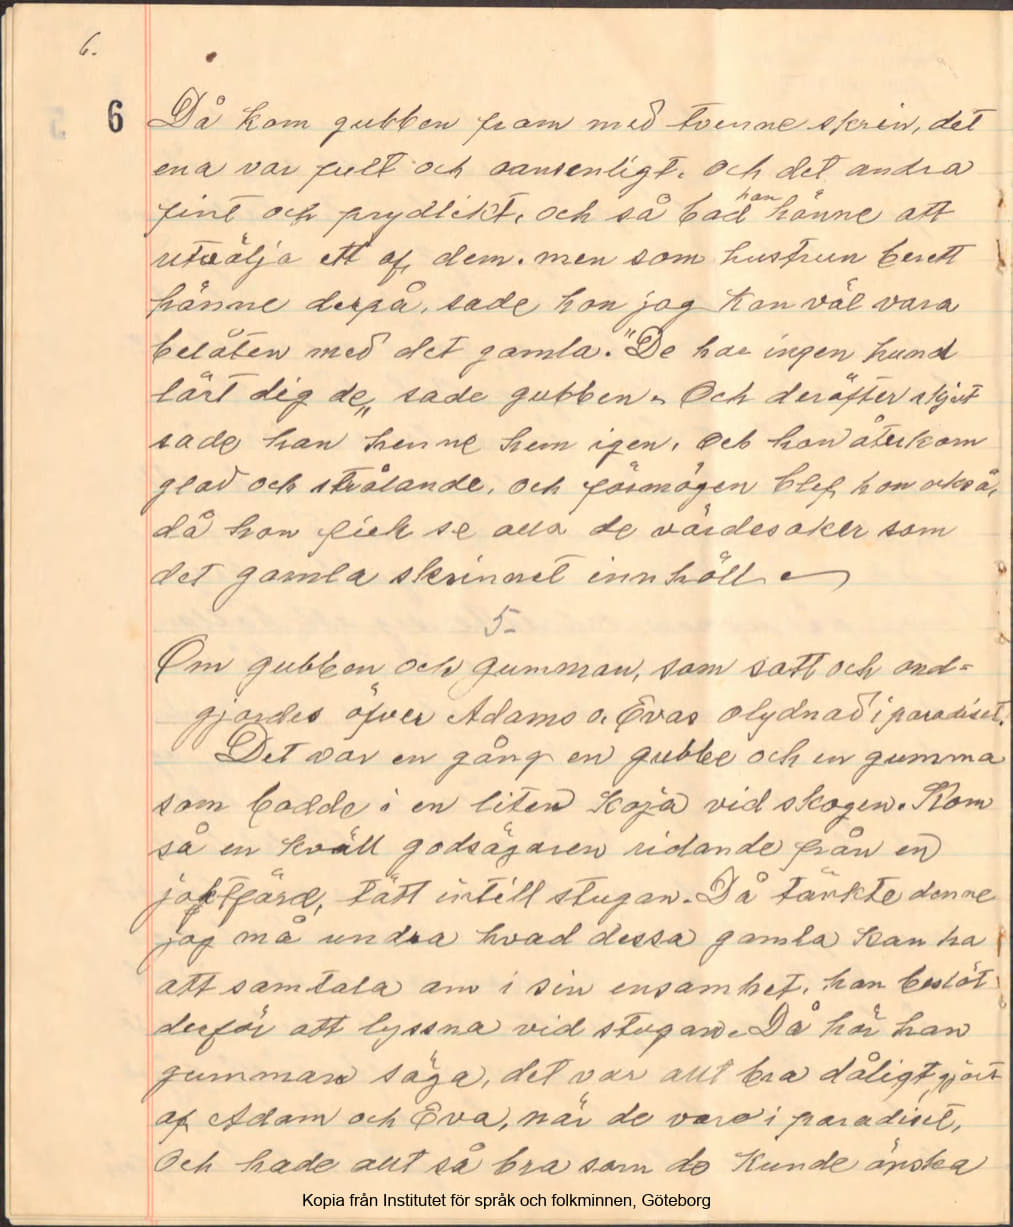 6.
6
Då kom gubben fram med tvenne skrin, det
ena var fult och oansenligt. och det andra
fint och prydlikt, och så bad han hänne att
utvälja ett af dem. men som hustrun berett
hänne derpå, sade hon jag kan väl vara
belåten med det gamla. "De har ingen hund
lärt dig de„ sade gubben. Och deräfter skjut
sade han henne hem igen. Och hon återkom
glad och strålande. och förmögen blef hon också,
då hon fick se alla de värdesaker som
det gamla skrinnet innhöll
5-
Om gubben och gumman, som satt och ond-
gjordes öfver Adams o. Evas olydnad i paradiset.
Det var en gång en gubbe och en gumma
som bodde i en liten koja vid skogen. Kom
så en kväll godsägaren ridande från en
jaktfärd, tätt intill stugan. Då tänkte denne
jag må undra hvad dessa gamla kan ha
att samtala om i sin ensamhet. han beslöt
derför att lyssna vid stugan. Då hör han
gumman säga, det var allt bra dåligt gjort
af Adam och Eva, när de voro i paradiset,
Och hade allt så bra som de kunde önska
Kopia från Institutet för språk och folkminnen, Göteborg